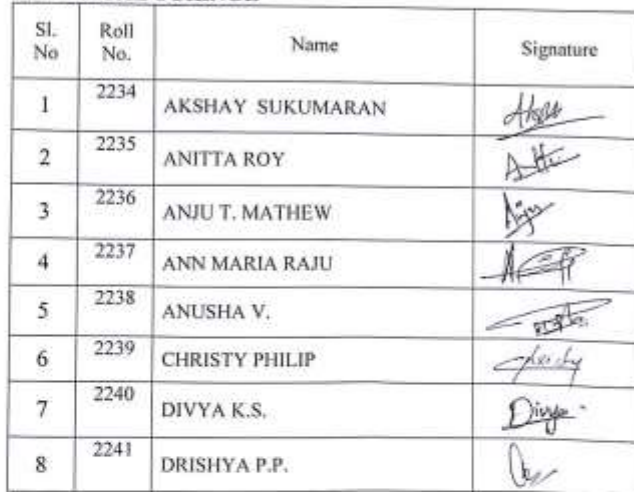 Sl. No Roll No. Name Signature
1 2234 AKSHAY SUKUMARAN
2 2235 ANITTA ROY
3 2236 ANJU T. MATHEW Anju
4 2237 ANN MARIA RAJU
5 2238 ANUSHA V.
6 2239 CHRISTY PHILIP Christy
7 2240 DIVYA K.S. Divya
8 2241 DRISHYA P.P.